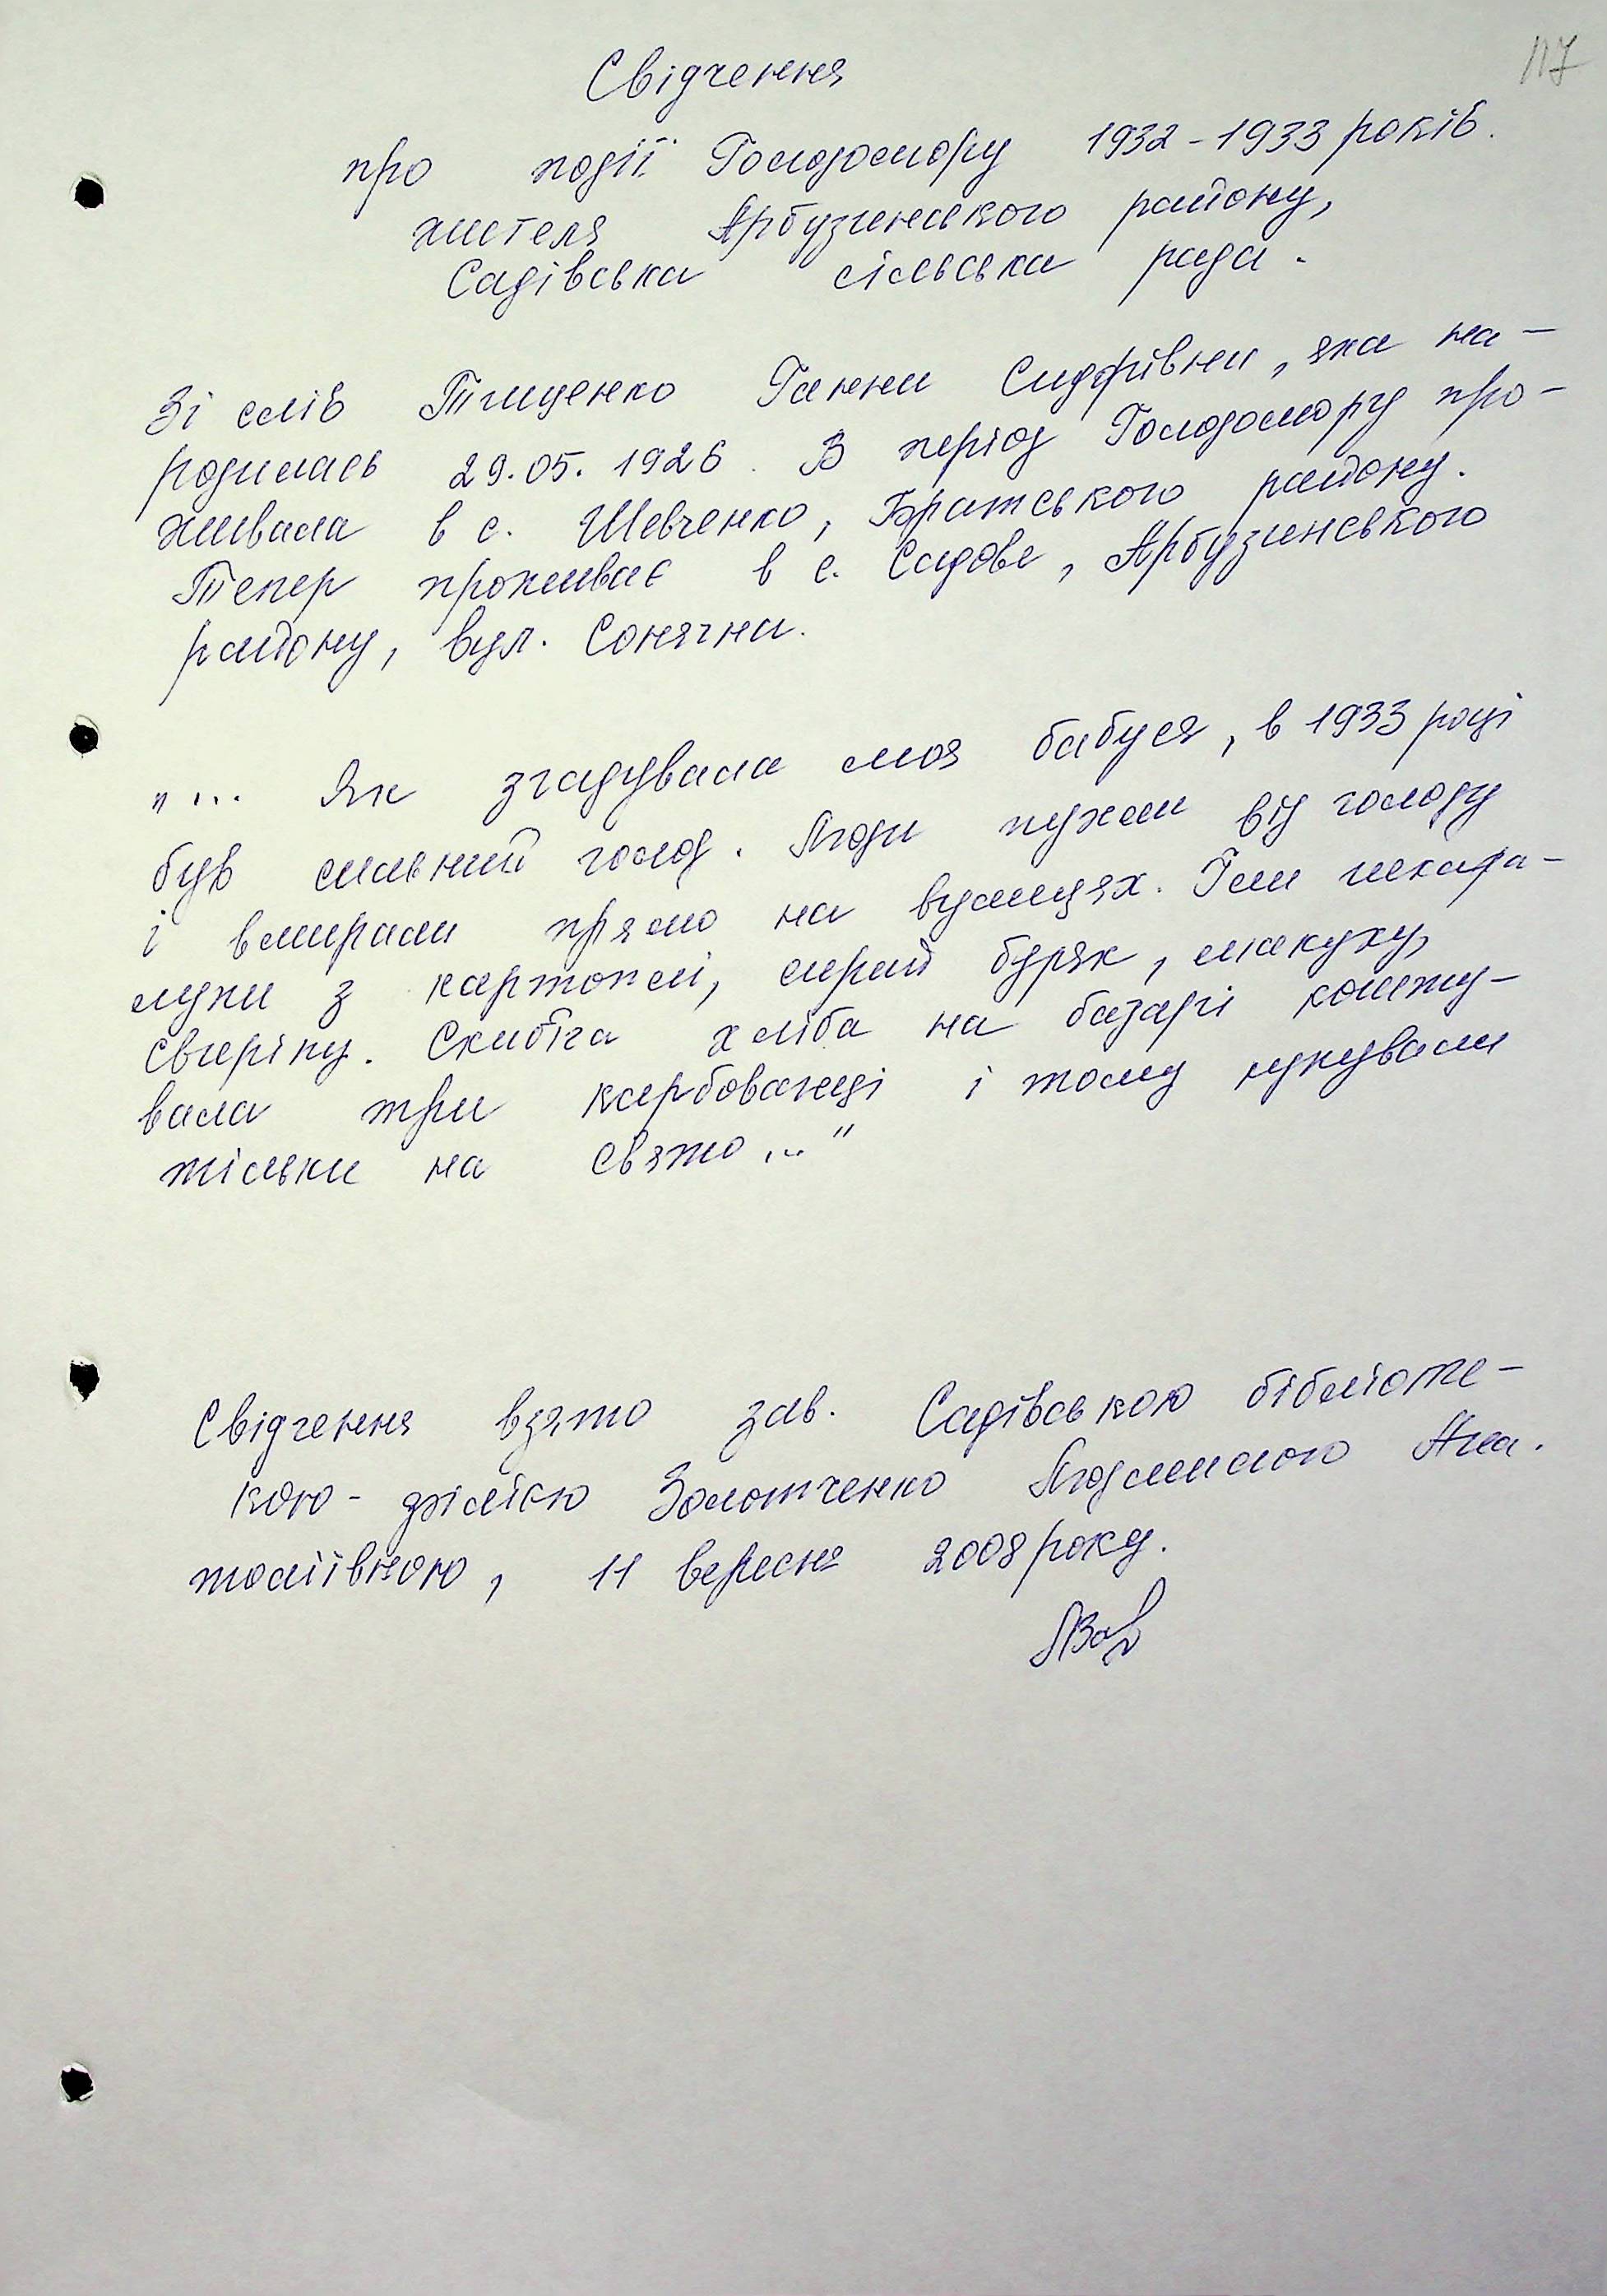 117
Свідчення
про події Голодомору 1932-1933 років.
жителя Арбузинського району,
Садівська сільська рада.
Зі слів Тищенко Ганни Сидорівни, яка на-
родилась 29.05.1926. В період Голодомору про-
живала в с. Шевченко, Братського району.
Тепер проживає в с. Садове, Арбузинського
району, вул. Сонячна.
"... Як згадувала моя бабуся, в 1933 році
був сильний голод. Люди пухли від голоду
і вмирали прямо на вулицях. Їли шкара-
лупи з картоплі, сирий буряк, макуху,
свиріпу. Скибіча хліба на базарі кошту-
вала три карбованці і тому купували
тільки на свято..."
Свідчення взято зав. Садівською бібліоте-
кою-філією Золотченко Людмилою Ана.
толіївною, 11 вересня 2008 року.